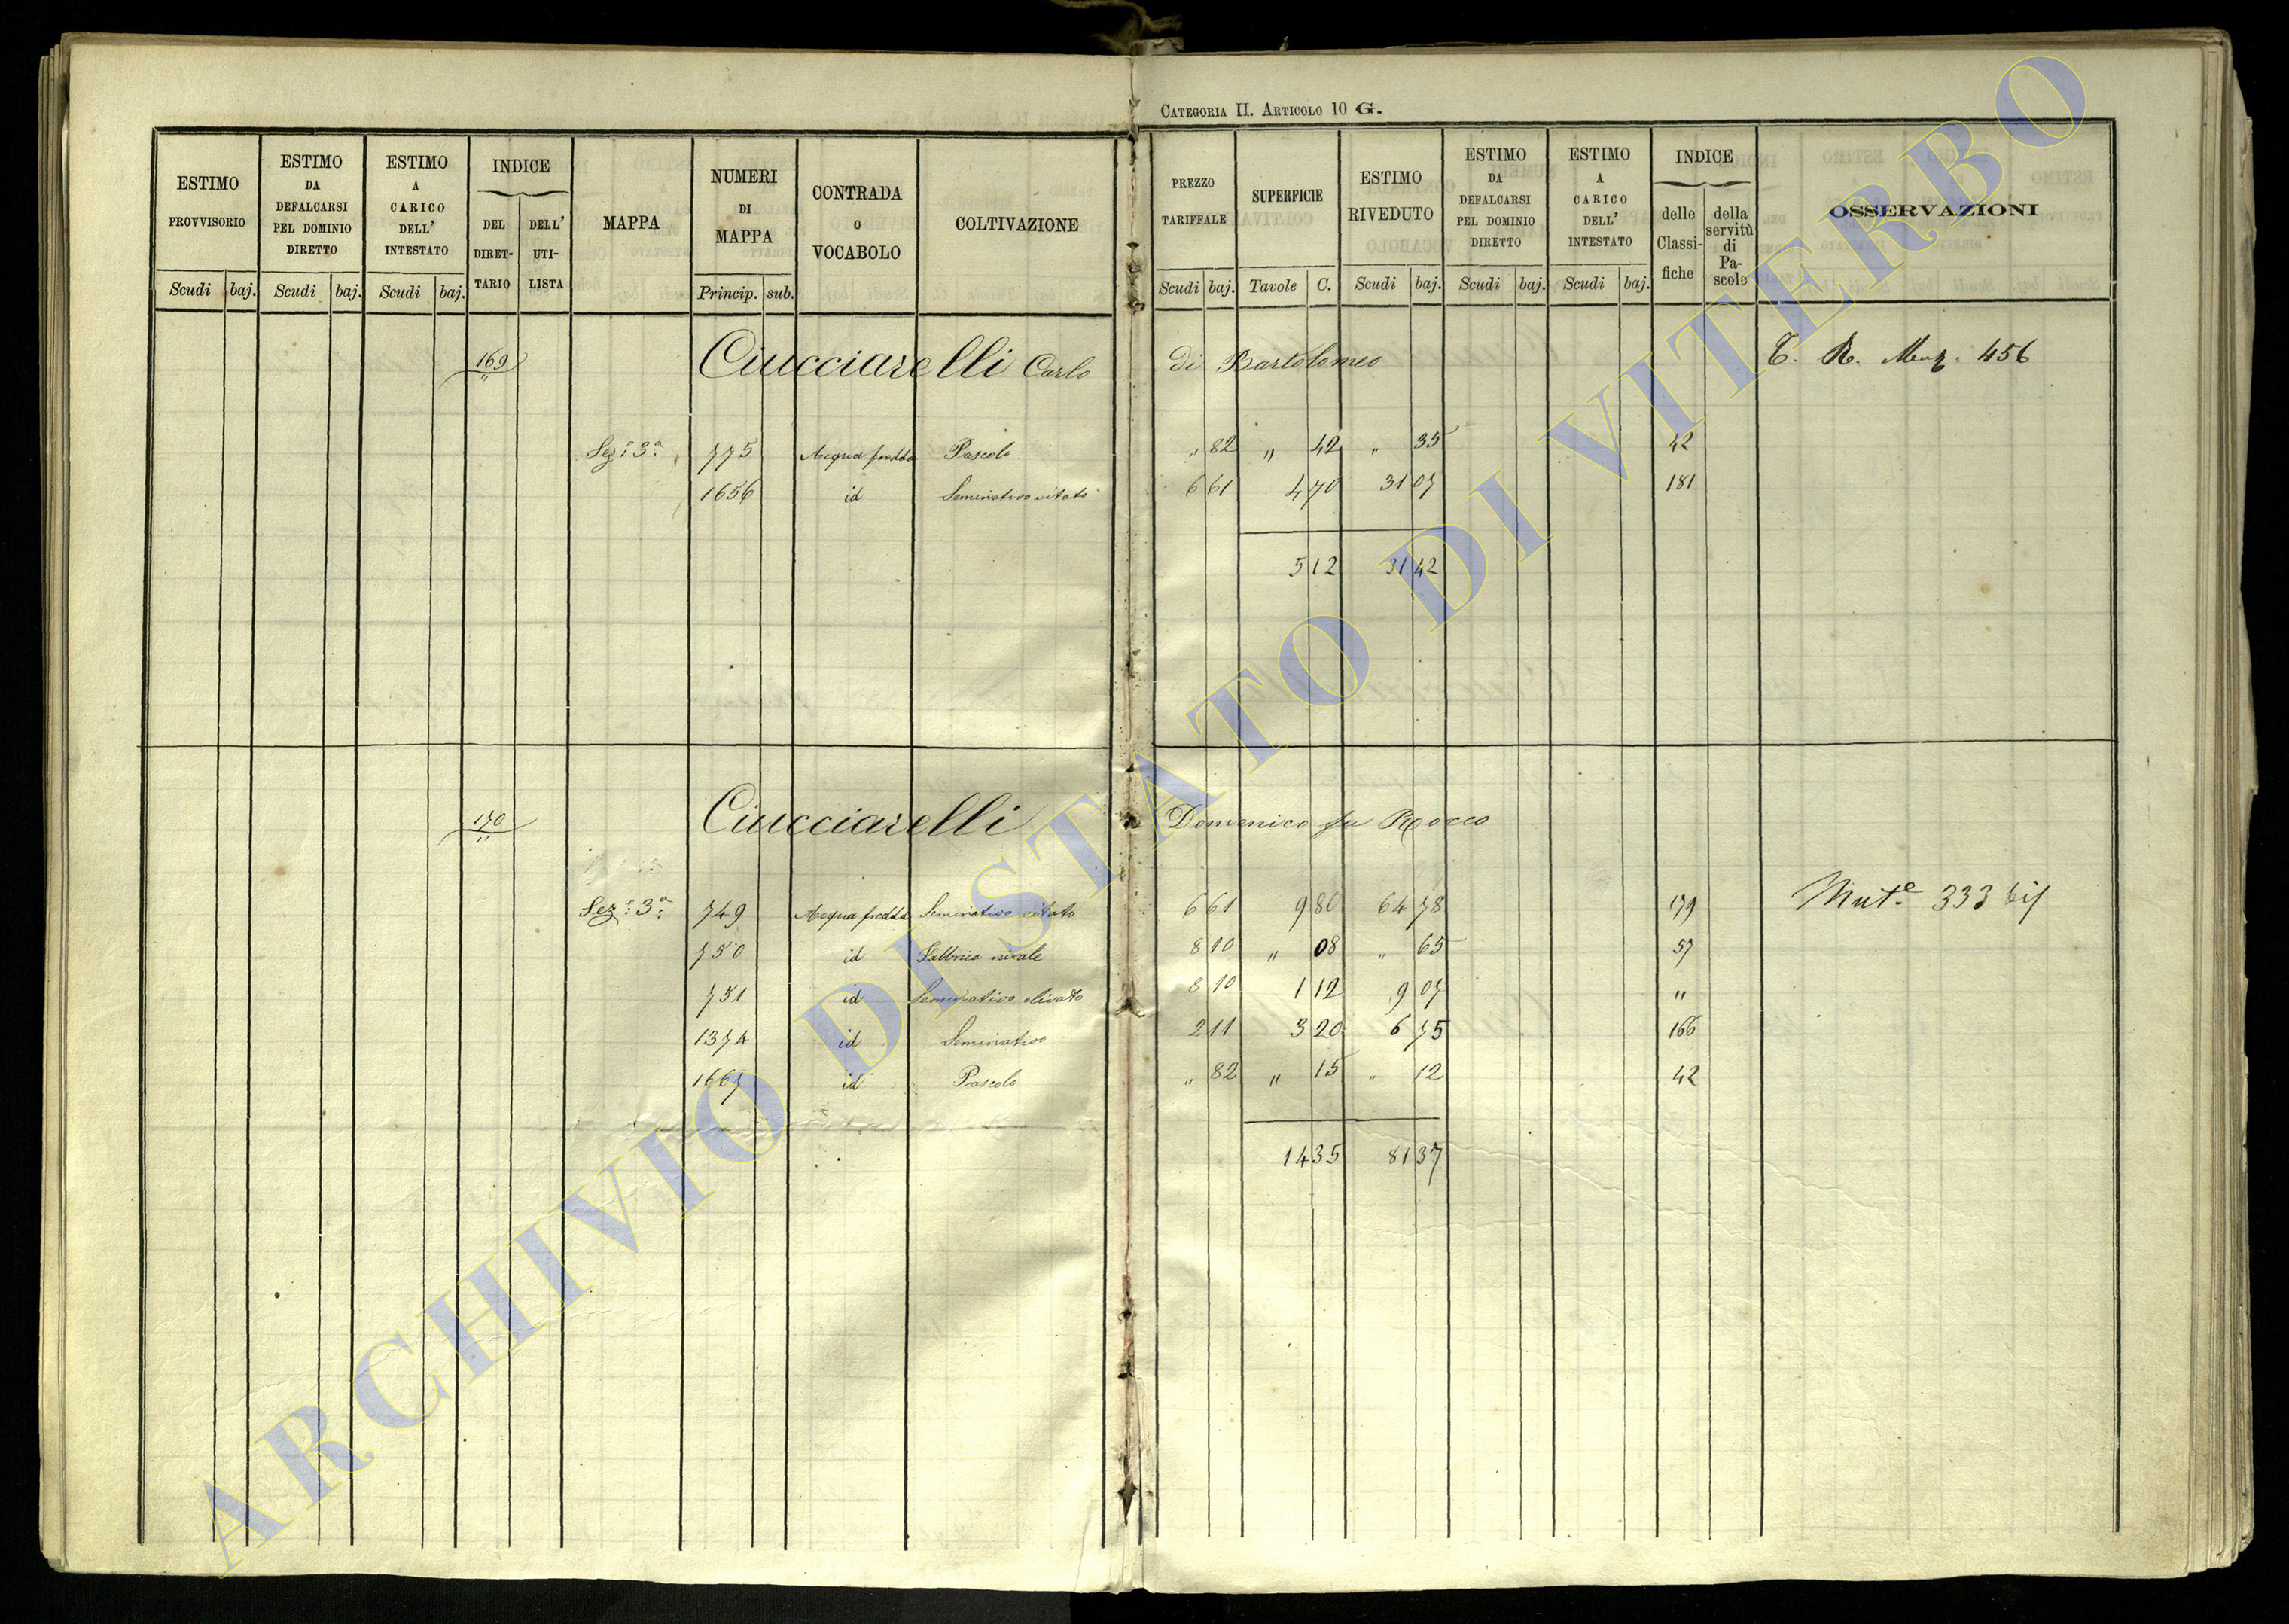 CATEGORIA II. ARTICOLO 10 G.
ESTIMO PROVVISORIO Scudi baj.
ESTIMO DA DEFALCARSI PEL DOMINIO DIRETTO Scudi baj.
ESTIMO A CARICO DELL' INTESTATO Scudi baj.
INDICE DEL DIRET-TARIO DELL' UTI-LISTA
MAPPA
NUMERI DI MAPPA Princip. sub.
CONTRADA O VOCABOLO
COLTIVAZIONE
PREZZO TARIFFALE Scudi baj.
SUPERFICIE Tavole C.
ESTIMO RIVEDUTO Scudi baj.
ESTIMO DA DEFALCARSI PEL DOMINIO DIRETTO Scudi baj.
ESTIMO A CARICO DELL' INTESTATO Scudi baj.
INDICE delle Classi-fiche della servitù di Pa-scolo
OSSERVAZIONI
169 Ciucciarelli Carlo di Bartolomeo 456
Sez: 3a: 775 Acqua fredda Pascolo " 82 " 42 " 35 42
1656 id Seminativo vitato 6 61 4 70 31 07 181
5 12 31 42
170 Ciucciarelli Domenico fu Rocco
Sez: 3a: 749 Acqua fredda Seminativo vitato 6 61 9 80 64 78 179 Mut.e 333 bis
750 id 8 10 " 08 " 65 57
751 id Seminativo olivato 8 10 1 12 9 07 "
1374 id Seminativo 2 11 3 20 6 75 166
1667 id Pascolo " 82 " 15 " 12 42
14 35 81 37
ARCHIVIO DI STATO DI VITERBO